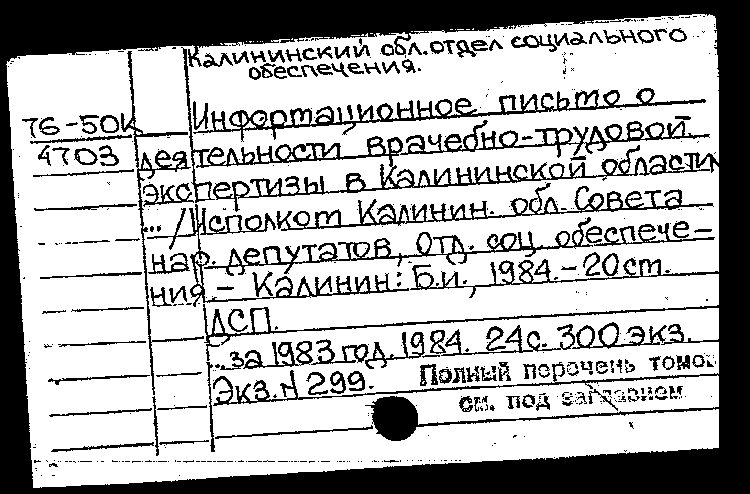 Калининский обл. отдел социального
обеспечения.
76-50К Информационное письмо о
4703 деятельности врачебно-трудовой
экспертизы в Калининской области
... /Исполком Калинин. обл. Совета
нар. депутатов, Отд. соц. обеспече-
ния. - Калинин: Б.и., 1984. - 20 ст.
ДСП.
...за 1983 год. 1984. 24с. 300 экз.
Экз. N 299. Полный перечень томов
см. под заглавием